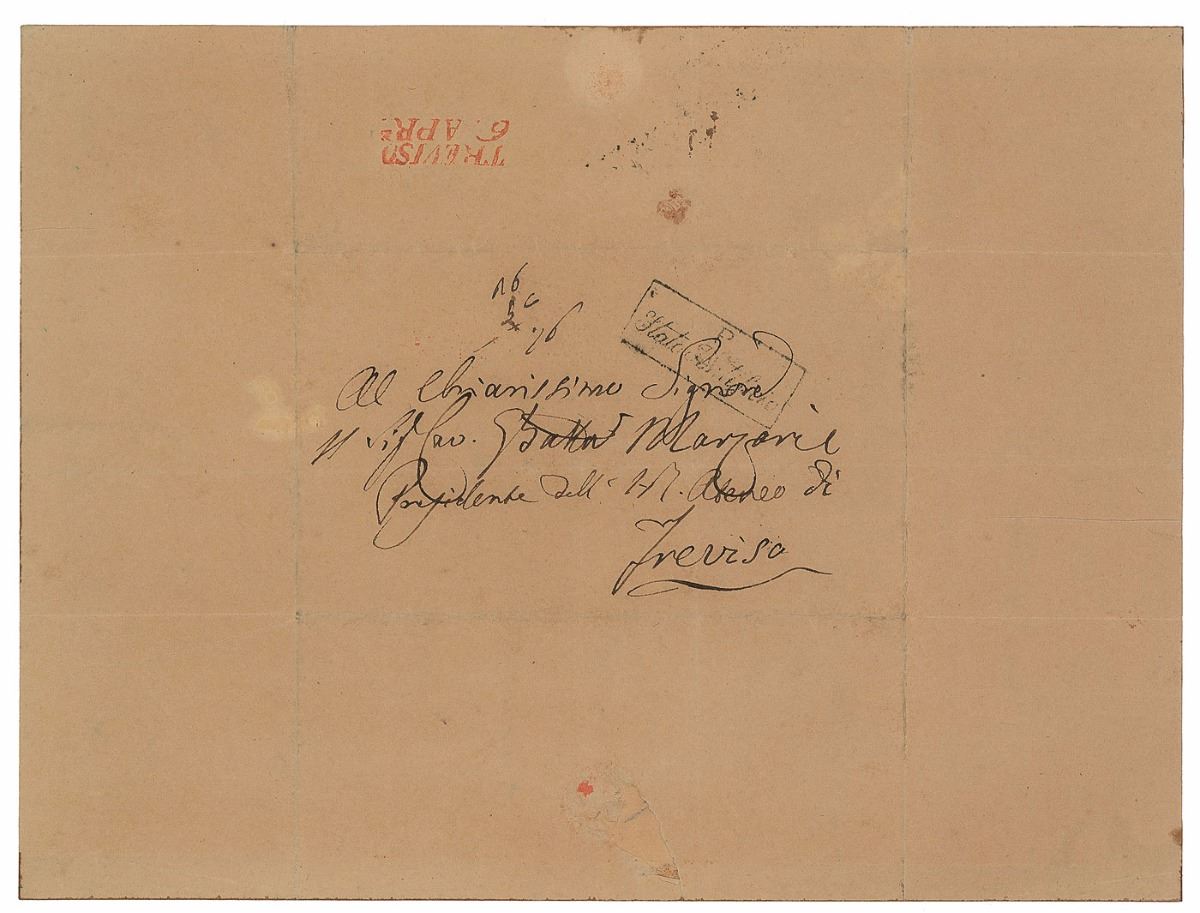 TREVISO
6. APR.
16
76
P.
Stato
Al Chiarissimo Signore
Il Sig. Cav. Batta Marzari
Presidente dell' Ateneo di
Treviso